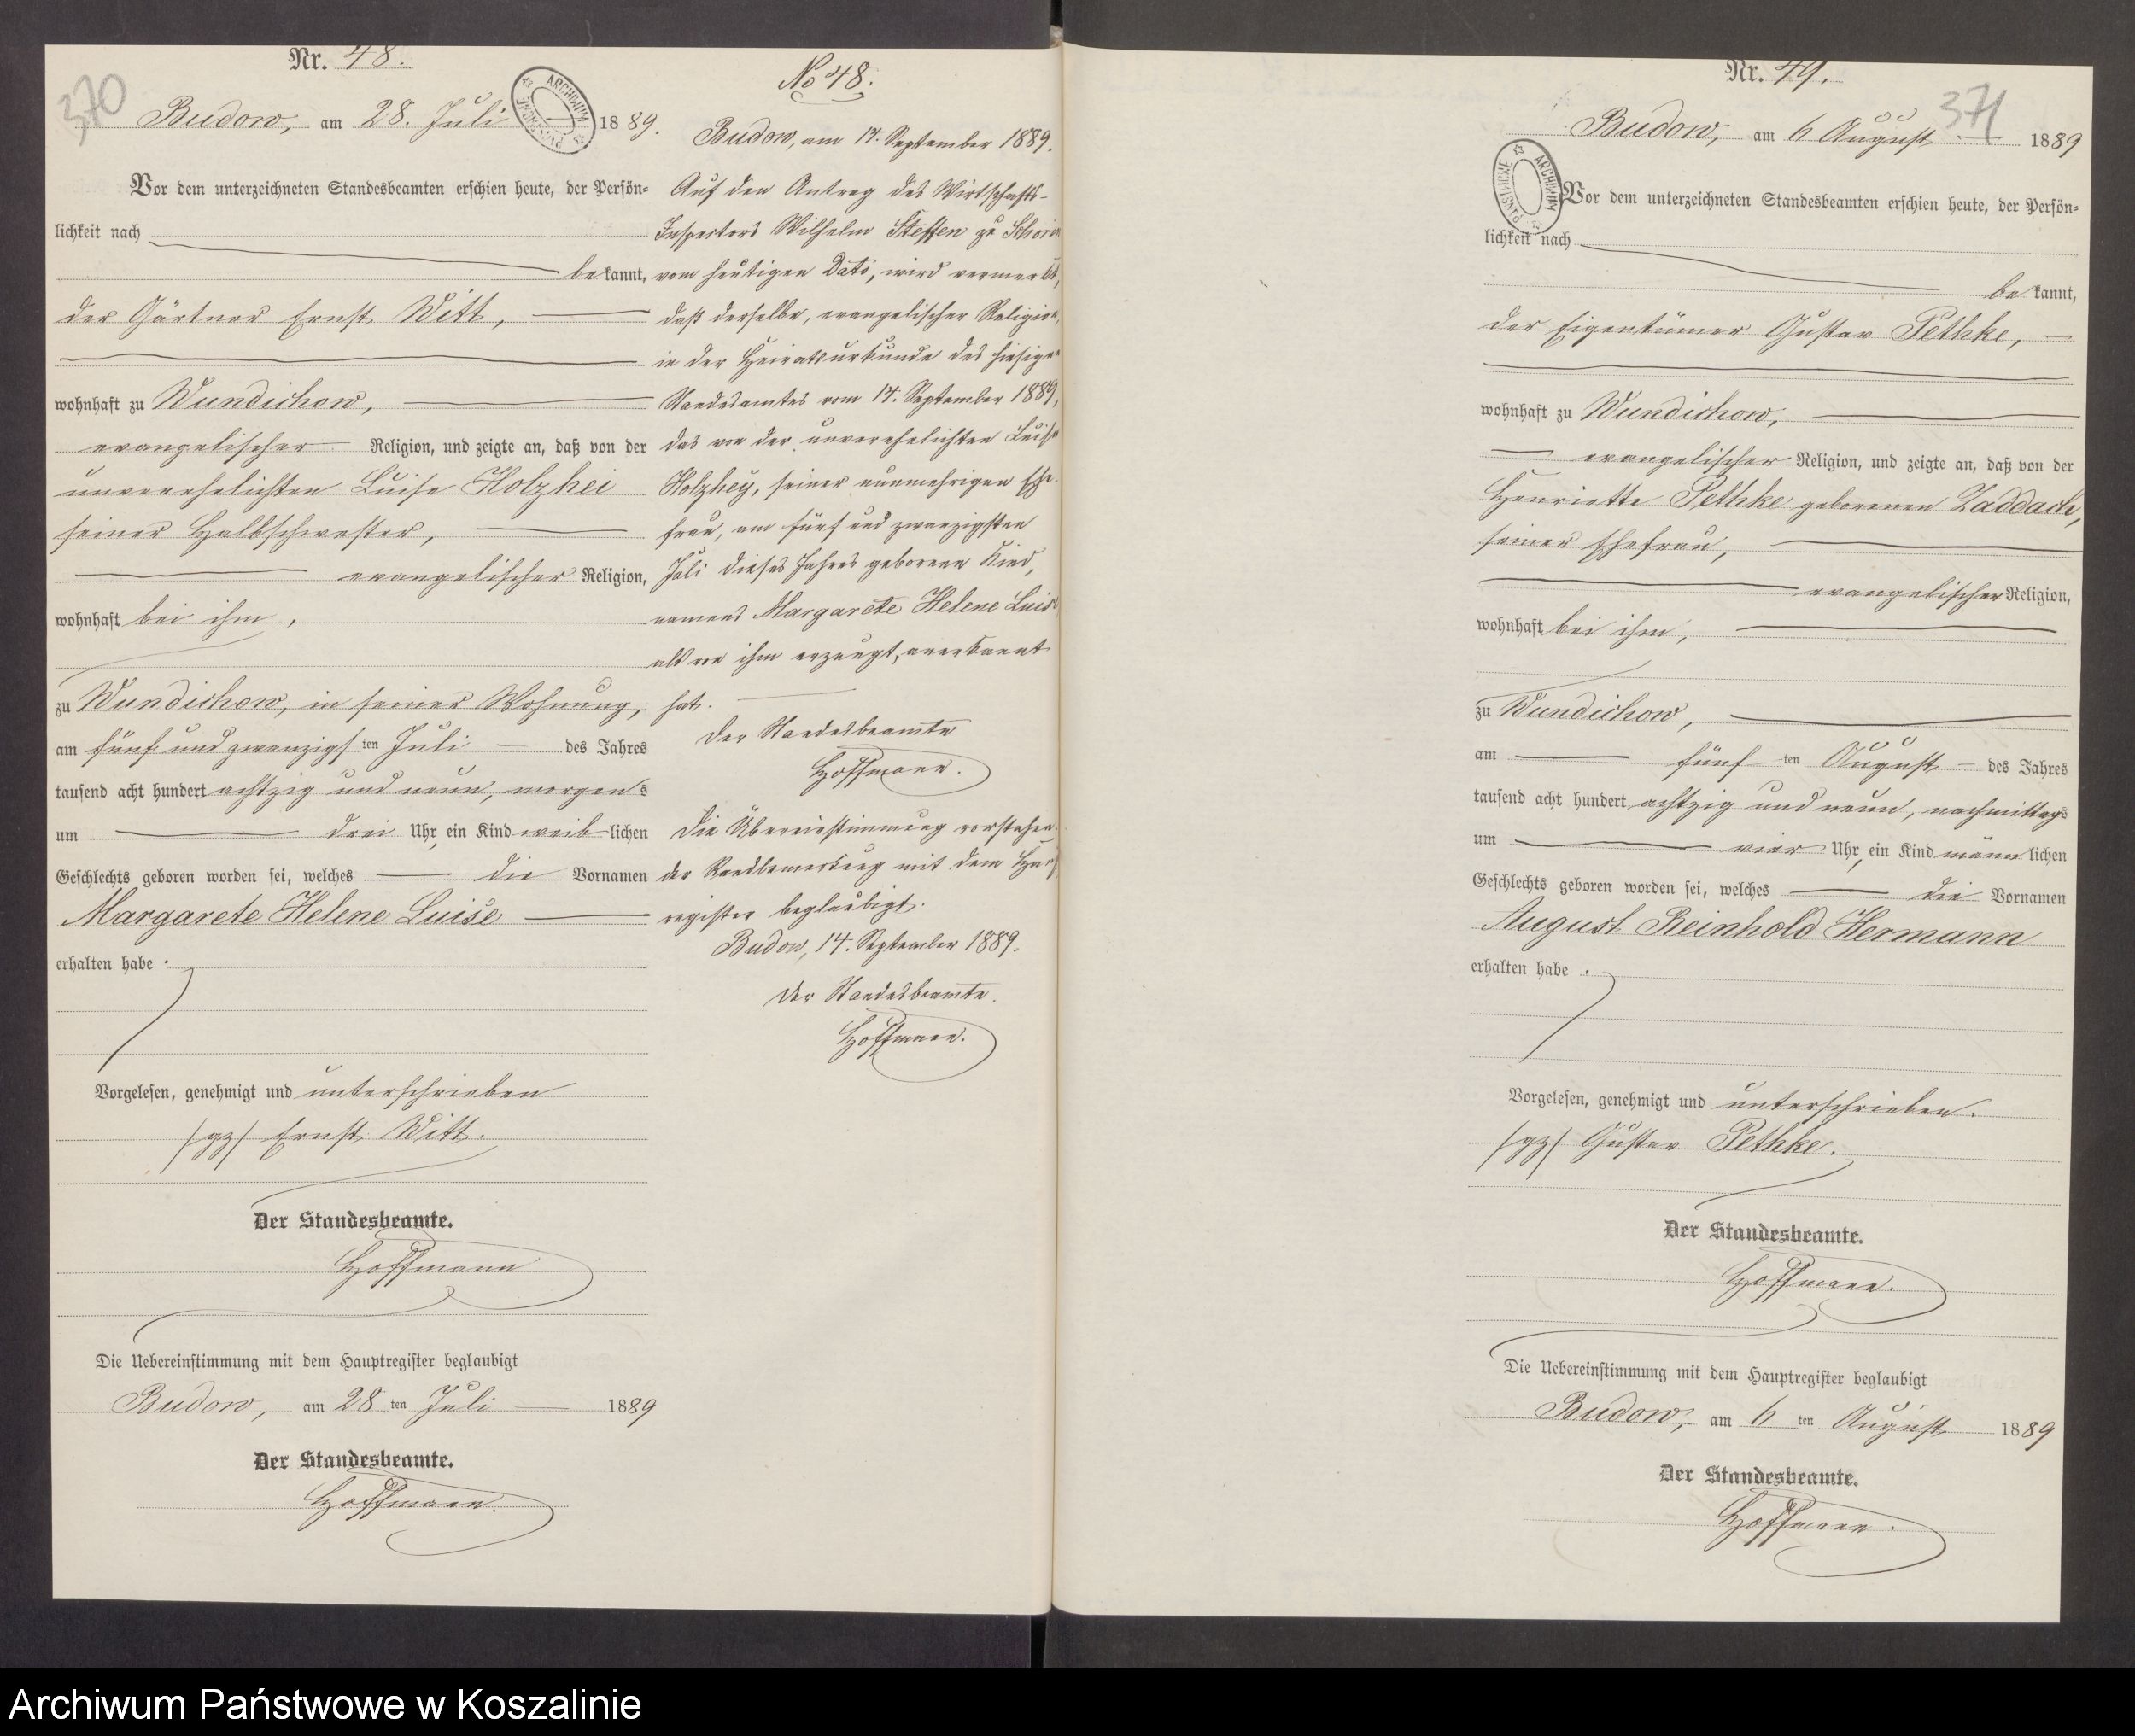 Nr. 48.
370
Budow, am 28. Juli 1889.
Vor dem unterzeichneten Standesbeamten erschien heute, der Persön-
lichkeit nach
bekannt,
der Gärtner Ernst Witt,
wohnhaft zu Wundichow,
evangelischer Religion, und zeigte an, daß von der
unverehelichten Luise Holzhei
seiner Halbschwester,
evangelischer Religion,
wohnhaft bei ihm,
zu Wundichow, in seiner Wohnung,
am fünf und zwanzigsten Juli des Jahres
tausend acht hundert achtzig und neun, morgens
um drei Uhr, ein Kind weiblichen
Geschlechts geboren worden sei, welches die Vornamen
Margarete Helene Luise
erhalten habe.
Vorgelesen, genehmigt und unterschrieben
/gz/ Ernst Witt.
Der Standesbeamte.
Hoffmann
Die Uebereinstimmung mit dem Hauptregister beglaubigt
Budow, am 28 ten Juli 1889
Der Standesbeamte.
Hoffmann.
No 48.
Budow, am 14. September 1889.
Auf den Antrag des Wirtschafts-
Inspectors Wilhelm Steffen zu
vom heutigen Dato, wird vermerkt,
daß derselbe, evangelischer Religion,
in der Heiratsurkunde des hiesigen
Standesamtes vom 14. September 1889,
das von der unverehelichten Luise
Holzhey, seiner nunmehrigen Ehe-
frau, am fünf und zwanzigsten
Juli dieses Jahres geborene Kind,
namens Margarete Helene Luise
als von ihm erzeugt, anerkannt
hat.
Der Standesbeamte
Hoffmann.
Die Übereinstimmung vorstehen-
der Randbemerkung mit dem Haupt-
register beglaubigt.
Budow, 14. September 1889.
Der Standesbeamte.
Hoffmann.
Nr. 49.
371
Budow, am 6 August 1889
Vor dem unterzeichneten Standesbeamten erschien heute, der Persön-
lichkeit nach
bekannt,
der Eigentümer Gustav Pethke,
wohnhaft zu Wundichow,
evangelischer Religion, und zeigte an, daß von der
Henriette Pethke geborenen Zaddach,
seiner Ehefrau,
evangelischer Religion,
wohnhaft bei ihm,
zu Wundichow,
am fünf ten August des Jahres
tausend acht hundert achtzig und neun, nachmittags
um vier Uhr, ein Kind männlichen
Geschlechts geboren worden sei, welches die Vornamen
August Reinhold Hermann
erhalten habe.
Vorgelesen, genehmigt und unterschrieben.
/gz/ Gustav Pethke.
Der Standesbeamte.
Hoffmann.
Die Uebereinstimmung mit dem Hauptregister beglaubigt
Budow, am 6 ten August 1889
Der Standesbeamte.
Hoffmann.
Archiwum Państwowe w Koszalinie